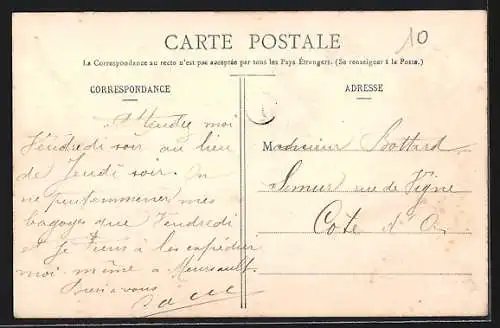 CARTE POSTALE
10
La Correspondance au recto n'est pas acceptée par tous les Pays Étrangers. (Se renseigner à la Poste.)
CORRESPONDANCE
ADRESSE
Attendre moi
Vendredi soir au lieu
de Jeudi soir. On
ne peut emmener mes
bagages que Vendredi
et je tiens à les expédier
moi même à Meursault.
Bien à vous
Monsieur Bottard
Semur rue de Vigne
Cote d'Or